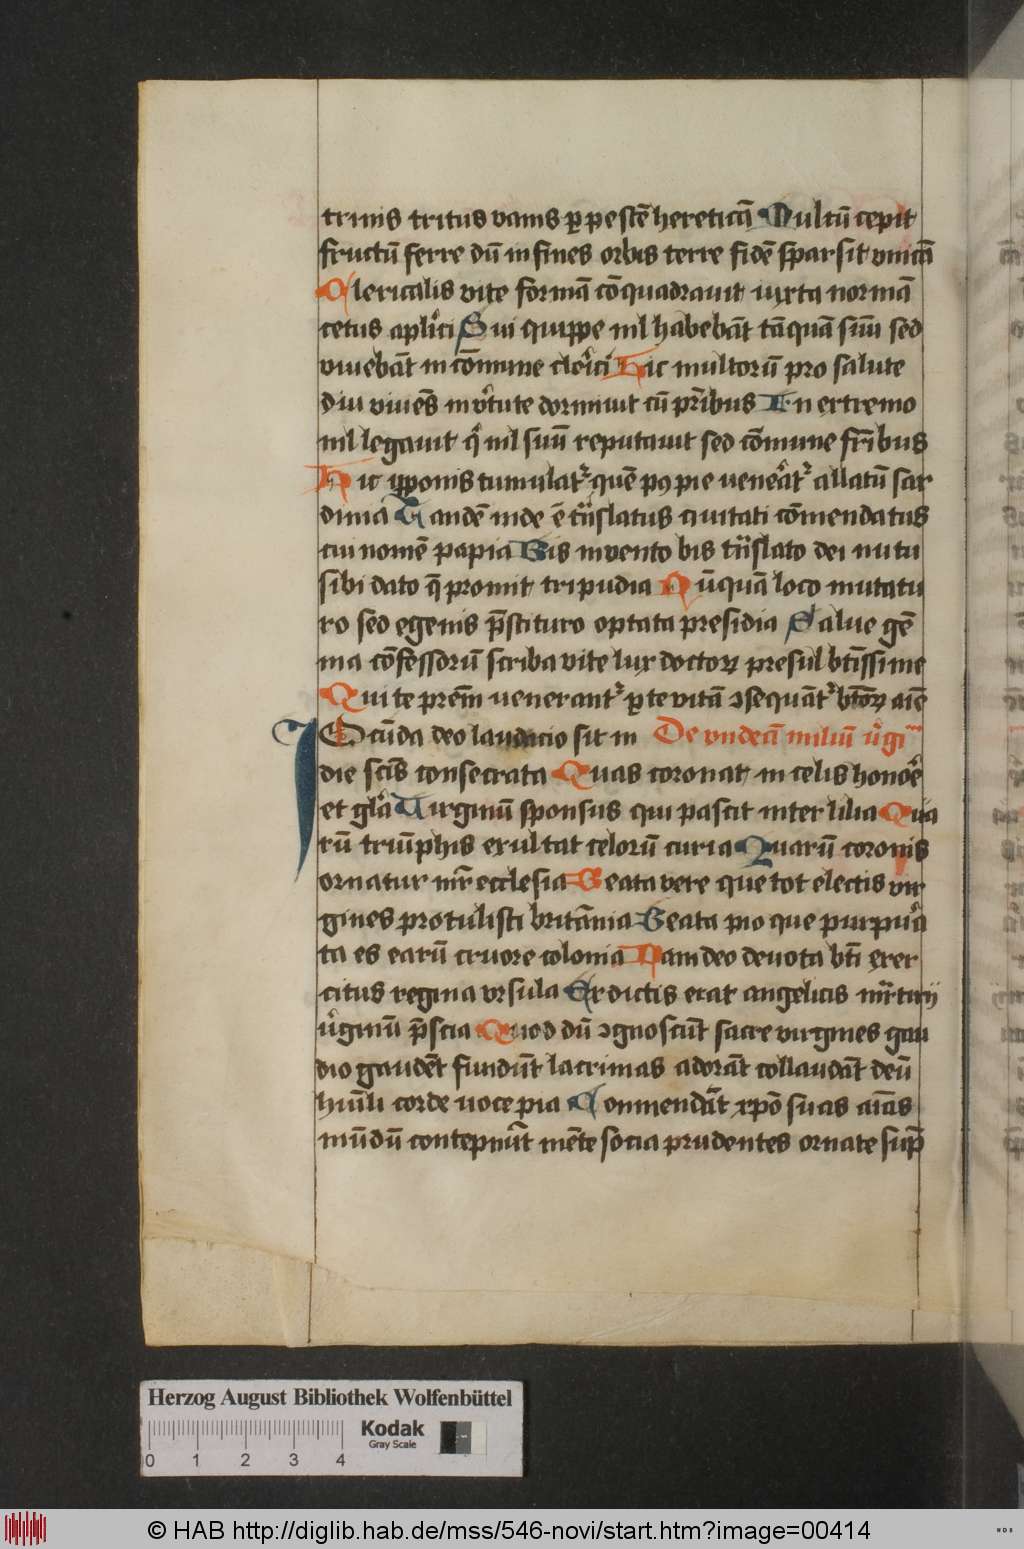 trinis tritus vanis ꝑ pestē hereticā Multū cepit
fructū ferre dū in fines orbis terre fidē sparsit vnicā
Clericalis vite formā cōquadrauit iuxta normā
cetus aplici Sui quippe nil habebāt tāquā suū sed
viuebāt in cōmune clerici Hic multorū pro salute
diu viuēs in vtute dormiuit cū pr̄ibus In extremo
nil legauit qͥ nil suū reputauit sed cōmune fr̄ibus
Hic yponis tumulatʳ quē pꝰ pie ueneratʳ allatū sar
dinia Tandē inde ē trāslatus ciuitati cōmendatus
cui nomē papia Bis inuento bis trāslato dei nutu
sibi dato q̄ promit tripudia Nūquā loco mutatu
ro sed egenis p̄stituro optata presidia Salue gē
ma cōfessorū scriba vite lux doctoꝝ presul btissime
Qui te prēm uenerantʳ ꝑ te vitā ↄsequātʳ btōꝝ aīe
IOcūda deo laudacio sit in De vndecī miliū v̓gi
die sc̄is consecrata Quas coronat in celis honore
et gl̓a Virginū sponsus qui pascit inter lilia Qua
rū triūphis exultat celorū curia Quarū coronis
ornatur mr̄ ecclesia Beata vere que tot electis vir
gines protulisti britānia Beata pio que purpura
ta es earū cruore colonia Nam deo deuota bt̄i exer
citus regina vrsula Ex dictis erat angelicis mr̄tirij
v̓ginū p̄scia Quod dū ↄgnoscūt sacre virgines gau
dio gaudēt fundūt lacrimas adorāt collaudāt deū
hūili corde uoce pia Commendāt xp̄o suas aīas
mūdū contepnūt mēte socia prudentes ornate sup̄
Herzog August Bibliothek Wolfenbüttel
0 1 2 3 4 Kodak Gray Scale
© HAB http://diglib.hab.de/mss/546-novi/start.htm?image=00414